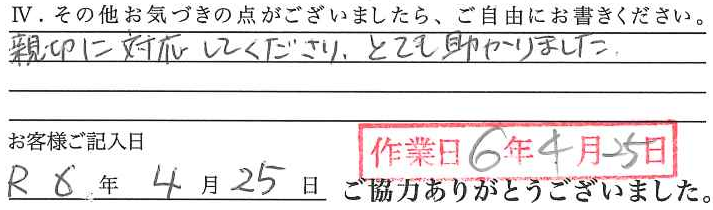 Ⅳ．その他お気づきの点がございましたら、ご自由にお書きください。
親切に対応してくださり、とても助かりました.
お客様ご記入日
作業日6年4月25日
R 6 年 4 月 25 日
ご協力ありがとうございました。